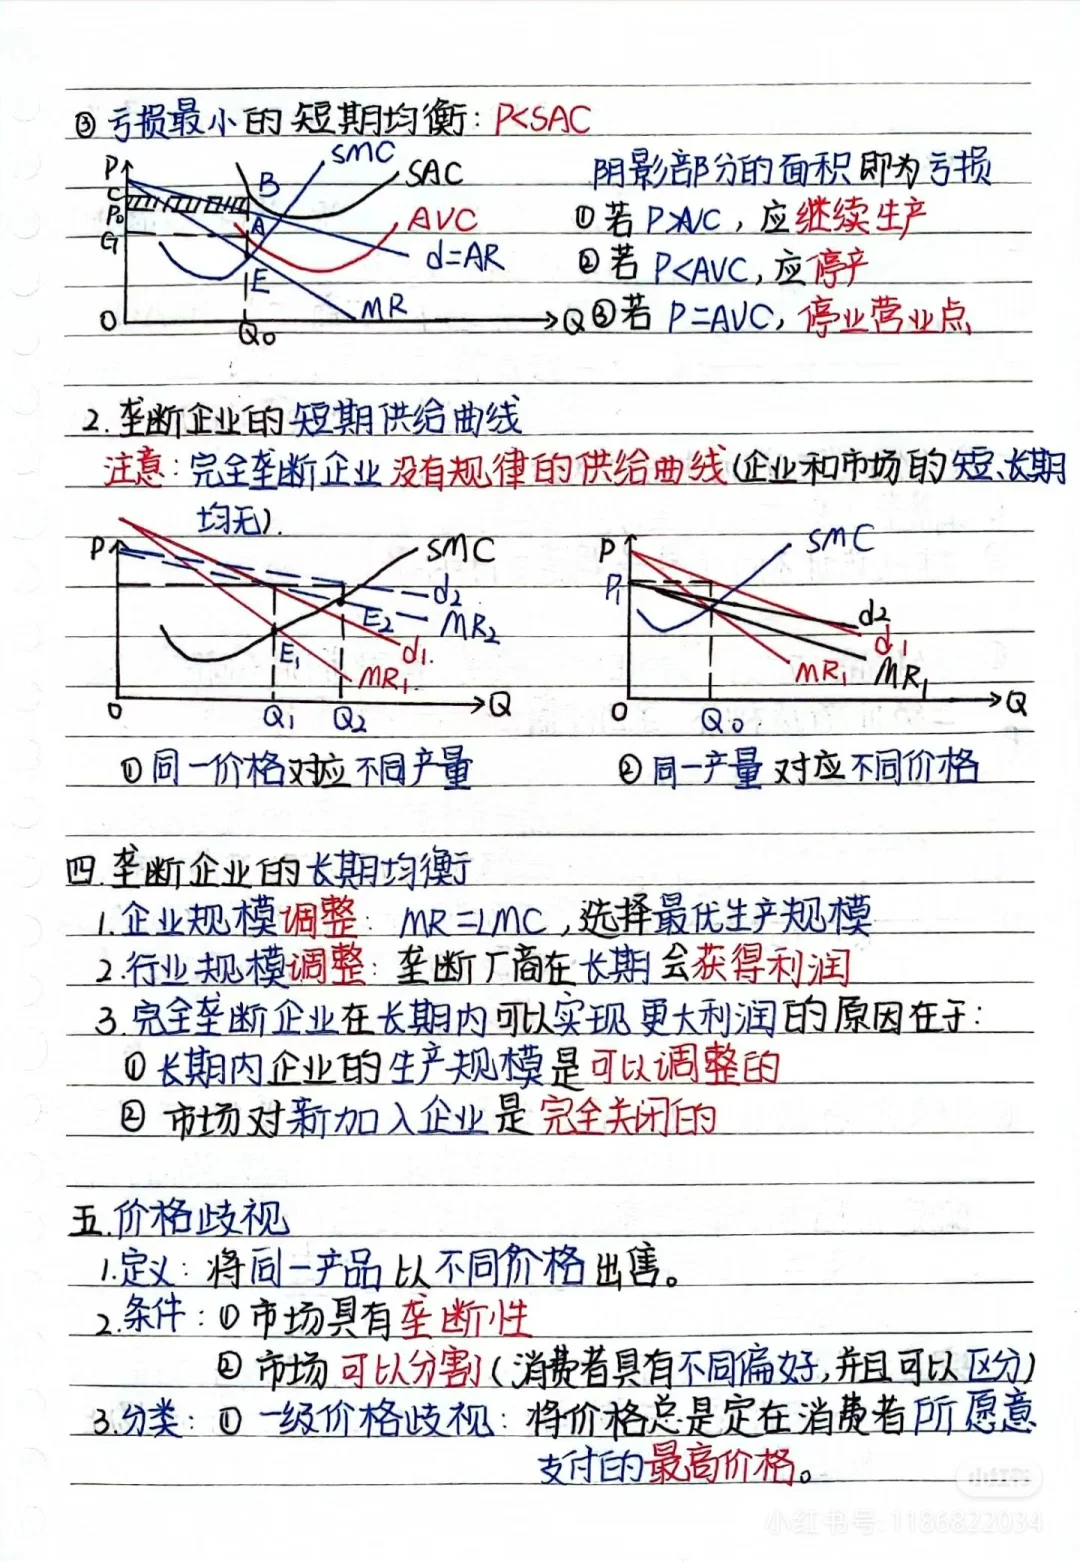 ③亏损最小的短期均衡：P<SAC
P
C
P₀
G
O
B
A
E
Q₀
SMC
SAC
AVC
d=AR
MR
Q
阴影部分的面积即为亏损
①若P>AVC，应继续生产
②若P<AVC，应停产
③若P=AVC，停业营业点
2.垄断企业的短期供给曲线
注意：完全垄断企业没有规律的供给曲线(企业和市场的短、长期
均无).
P
SMC
d₂
E₂
MR₂
E₁
d₁.
MR₁
O
Q₁
Q₂
Q
P
P₁
SMC
d₂
d₁
MR₁
MR₁
O
Q₀
Q
①同一价格对应不同产量
②同一产量对应不同价格
四.垄断企业的长期均衡
1.企业规模调整：MR=LMC，选择最优生产规模
2.行业规模调整：垄断厂商在长期会获得利润
3.完全垄断企业在长期内可以实现更大利润的原因在于：
①长期内企业的生产规模是可以调整的
②市场对新加入企业是完全关闭的
五.价格歧视
1.定义：将同一产品以不同价格出售。
2.条件：①市场具有垄断性
②市场可以分割(消费者具有不同偏好,并且可以区分)
3.分类：①一级价格歧视：将价格总是定在消费者所愿意
支付的最高价格。
小红书号:1186822034